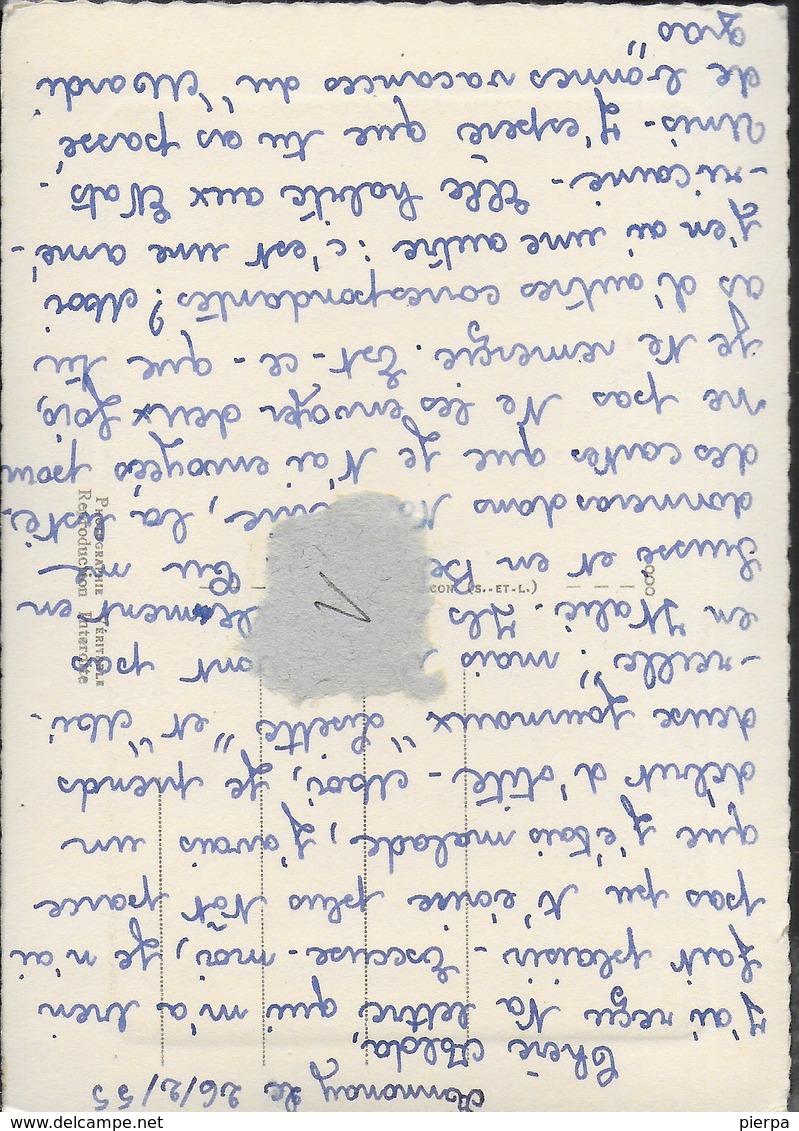 Annonay le 26/2/55
Chère Alda,
J'ai reçu ta lettre qui m'a bien
fait plaisir. Excuse-moi, je n'ai
pas pu t'écrire plus tôt parce
que j'étais malade, j'avais un
début d'otite. Moi, je prends
deux journaux "Lisette" et "Mi-
-reille", mais ont pas
en Italie. Ils en
Suisse et en Be Tu me
donneras dans ta la liste
des cartes que je t'ai envoyées pour
ne pas te les envoyer deux fois,
je te remercie. Est-ce-que tu
as d'autres correspondantes? Moi
j'en ai une autre : c'est une amé-
-ricaine. Elle habite aux Etats-
Unis. J'espère que tu as passé
de bonnes vacances du "Mardi
gras"
PHOTOGRAPHIE VÉRITABLE
Reproduction Interdite
CON (S.-ET-L.)
V
pierpa